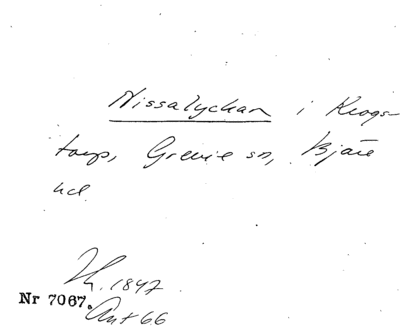 Nissalyckan i Krogs-
torp, Grevie sn, Bjäre
hd.
Th. 1847
Nr 7067.
Ant 66